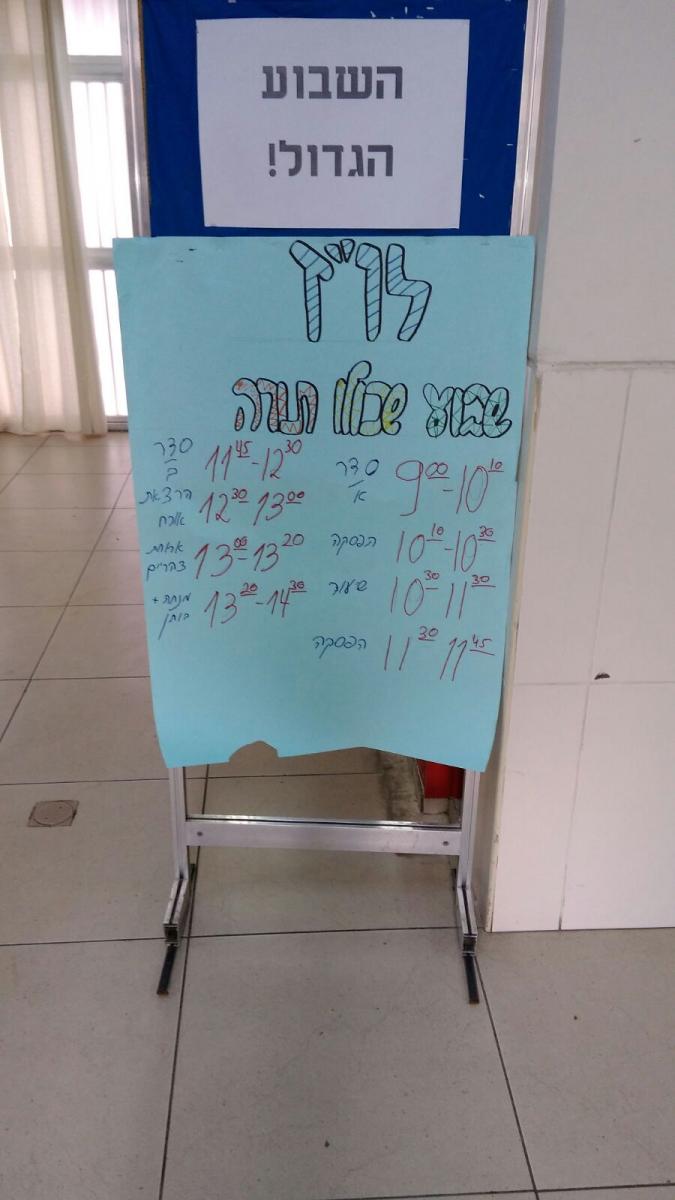 השבוע
הגדול!
לו"ז
שבוע שכולו תורה
סדר א' 9:00-10:10
הפסקה 10:10-10:30
שיעור 10:30-11:30
הפסקה 11:30 11:45
סדר ב' 11:45-12:30
הרצאת אורח 12:30-13:00
ארוחת צהריים 13:00-13:20
מנחה + בוחן 13:20-14:30